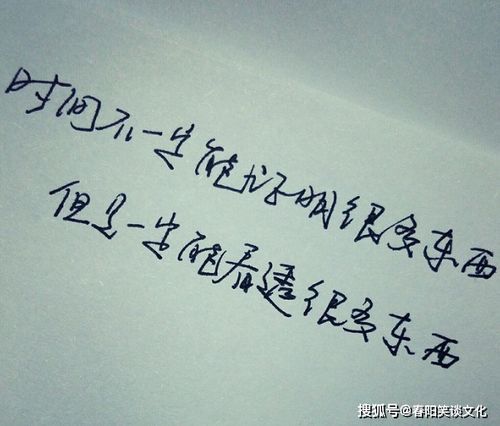 时间不一定能证明很多东西
但是一定能看透很多东西
搜狐号@春阳笑谈文化